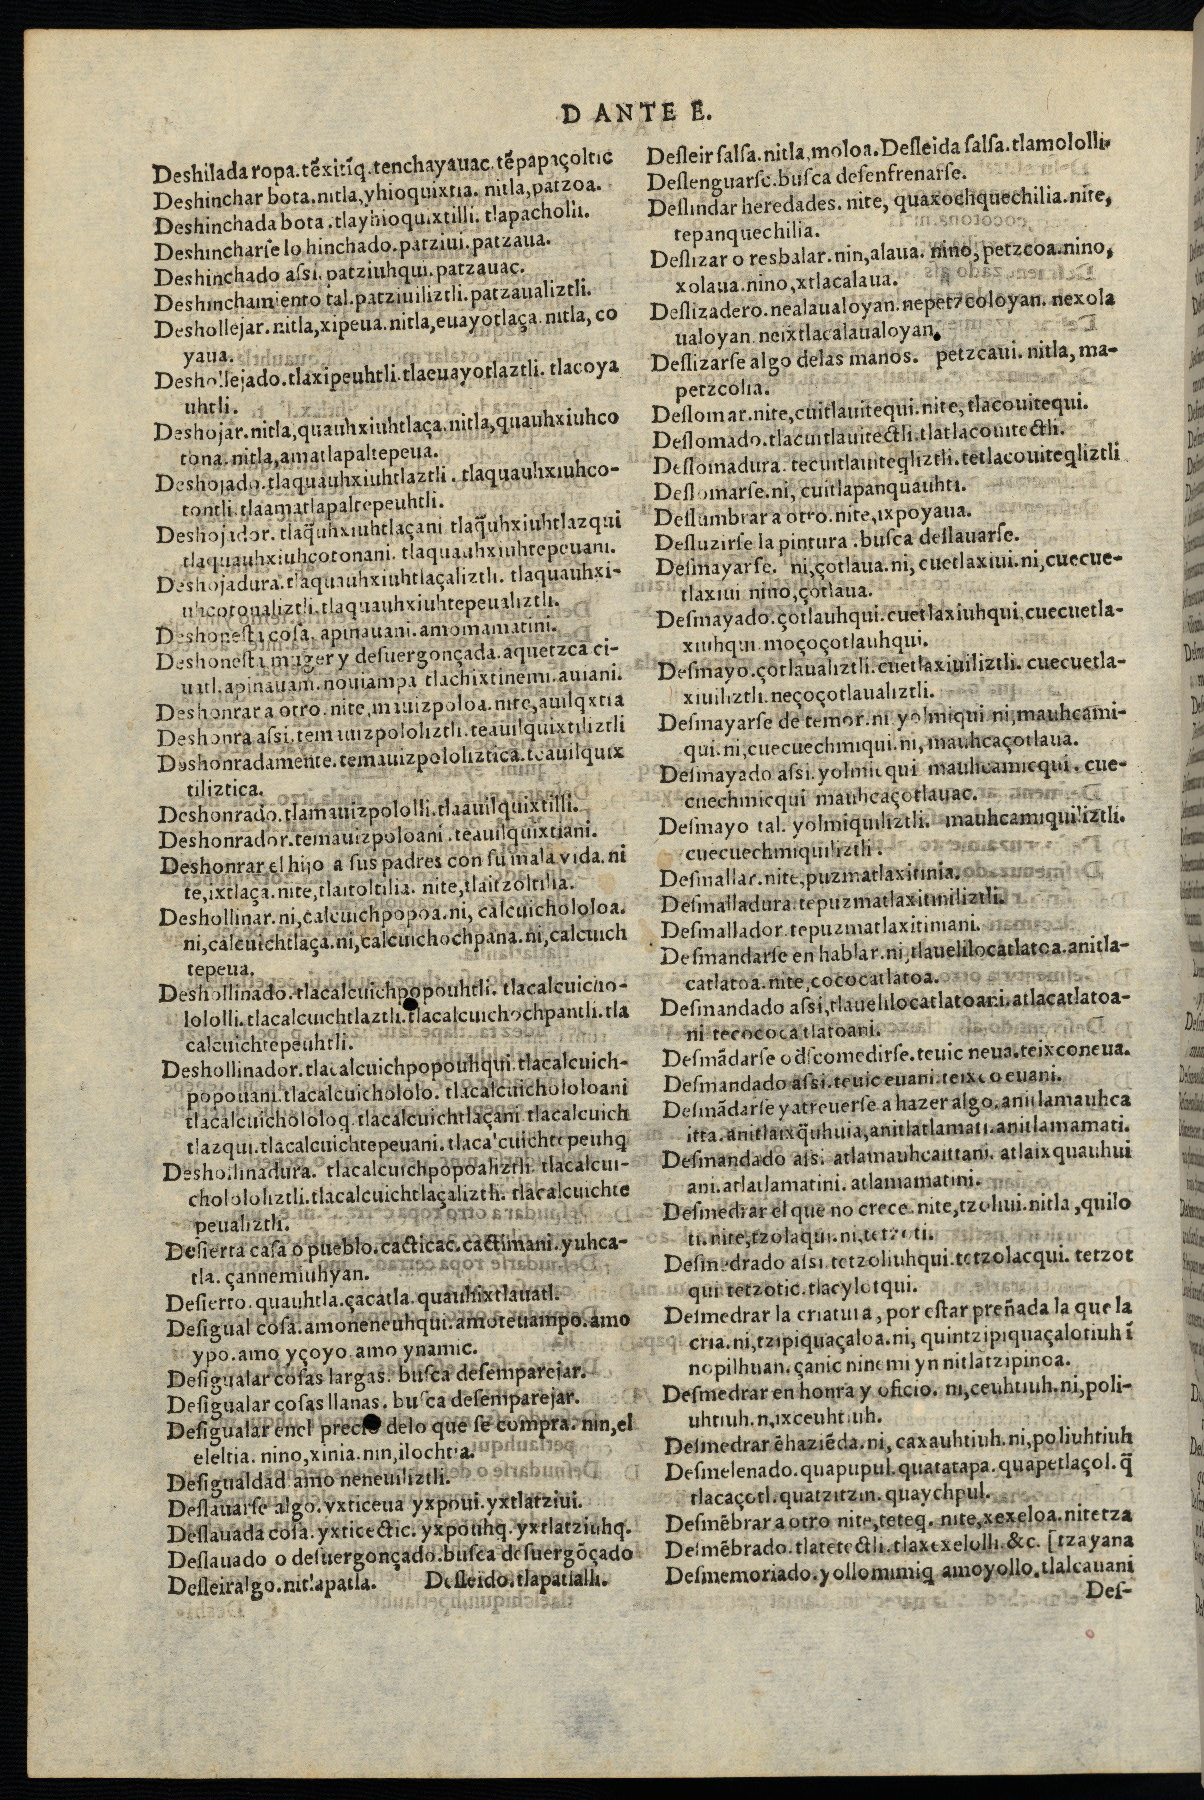 D ANTE E.
Deshilada ropa.tēxitīq.tenchayauac.tēpapaçoltic
Deshinchar bota.nitla,yhioquixtia. nitla,patzoa.
Deshinchada bota.tlayhioquixtilli. tlapacholli.
Deshincharſe lo hinchado.patziui.patzaua.
Deshinchado aſsi.patziuhqui.patzauac.
Deshinchamiento tal.patziuiliztli.patzaualiztli.
Deshollejar.nitla,xipeua.nitla,euayotlaça.nitla,co
yaua.
Deshollejado.tlaxipeuhtli.tlaeuayotlaztli. tlacoya
uhtli.
Deshojar.nitla,quauhxiuhtlaça.nitla,quauhxiuhco
tona.nitla,amatlapaltepeua.
Deshojado.tlaquauhxiuhtlaztli. tlaquauhxiuhco-
tontli.tlaamatlapaltepeuhtli.
Deshojador. tlaq̃uhxiuhtlaçani tlaq̃uhxiuhtlazqui
tlaquauhxiuhcotonani. tlaquauhxiuhtepeuani.
Deshojadura.tlaquauhxiuhtlaçaliztli. tlaquauhxi-
uhcotonaliztli.tlaquauhxiuhtepeualiztli.
Deshoneſta coſa. apinauani.amomamatini.
Deshoneſta muger y deſuergonçada.aquetzca ci-
uatl.apinauani.nouiampa tlachixtinemi.auiani.
Deshonrar a otro.nite,mauizpoloa.nite,auilqxtia
Deshonra aſsi.temauizpololiztli.teauilquixtiliztli
Deshonradamente.temauizpololiztica.teauilquix
tiliztica.
Deshonrado.tlamauizpololli.tlaauilquixtilli.
Deshonrador.temauizpoloani.teauilquixtiani.
Deshonrar el hijo a ſus padres con ſu mala vida.ni
te,ixtlaça.nite,tlaitoltilia. nite,tlaitzoltilia.
Deshollinar.ni,calcuichpopoa.ni, calcuichololoa.
ni,calcuichtlaça.ni,calcuichochpana.ni,calcuich
tepeua.
Deshollinado.tlacalcuichpopouhtli. tlacalcuicho-
lololli.tlacalcuichtlaztli.tlacalcuichochpantli.tla
calcuichtepeuhtli.
Deshollinador.tlacalcuichpopouhqui.tlacalcuich-
popouani.tlacalcuichololo. tlacalcuichololoani
tlacalcuichololoq.tlacalcuichtlaçani tlacalcuich
tlazqui.tlacalcuichtepeuani.tlacalcuichtepeuhq̄
Deshollinadura. tlacalcuichpopoaliztli. tlacalcui-
cholololiztli.tlacalcuichtlaçaliztli. tlacalcuichte
peualiztli.
Deſierta caſa o pueblo.cacticac.cactimani.yuhca-
tla. çannemiuhyan.
Deſierto.quauhtla.çacatla.quauhixtlauatl.
Deſigual coſa.amoneneuhqui.amoteuampo.amo
ypo.amo yçoyo.amo ynamic.
Deſigualar coſas largas. buſca deſemparejar.
Deſigualar coſas llanas. buſca deſemparejar.
Deſigualar enel precio delo que ſe compra. nin,el
eleltia. nino,xinia.nin,ilochtia.
Deſigualdad amo neneuiliztli.
Deſlauarſe algo.yxticeua yxpoui.yxtlatziui.
Deſlauada coſa.yxticectic.yxpouhq.yxtlatziuhq.
Deſlauado o deſuergonçado.buſca deſuergōçado
Deſleir algo.nitlapatla. Deſleido.tlapatlalli.
Deſleir ſalſa.nitla,moloa.Deſleida ſalſa.tlamololli.
Deſlenguarſe.buſca deſenfrenarſe.
Deſlindar heredades. nite, quaxochquechilia.nite,
tepanquechilia.
Deſlizar o resbalar.nin,alaua. nino,petzcoa.nino,
xolaua.nino,xtlacalaua.
Deſlizadero.nealaualoyan.nepetzcoloyan. nexola
ualoyan.neixtlacalaualoyan.
Deſlizarſe algo delas manos. petzcaui. nitla,ma-
petzcolia.
Deſlomar.nite,cuitlauitequi.nite,tlacouitequi.
Deſlomado.tlacuitlauitectli.tlatlacouitectli.
Deſlomadura. tecuitlauiteqliztli.tetlacouiteqliztli
Deſlomarſe.ni,cuitlapanquauhti.
Deſlumbrar a otro.nite,ixpoyaua.
Deſluzirſe la pintura.buſca deſlauarſe.
Deſmayarſe. ni,çotlaua.ni,cuetlaxiui.ni,cuecue-
tlaxiui nino,çotlaua.
Deſmayado.çotlauhqui.cuetlaxiuhqui,cuecuetla-
xiuhqui.moçoçotlauhqui.
Deſmayo.çotlaualiztli.cuetlaxiuiliztli. cuecuetla-
xiuiliztli.neçoçotlaualiztli.
Deſmayarſe de temor.ni yolmiqui ni,mauhcami-
qui.ni,cuecuechmiqui.ni,mauhcaçotlaua.
Deſmayado aſsi.yolmicqui mauhcamicqui.cue-
cuechmicqui mauhcaçotlauac.
Deſmayo tal. yolmiquiliztli. mauhcamiquiliztli.
cuecuechmiquiliztli.
Deſmallar.nite,puzmatlaxitinia.
Deſmalladura.tepuzmatlaxitiniliztli.
Deſmallador.tepuzmatlaxitimani.
Deſmandarſe en hablar.ni,tlauelilocatlatoa.anitla-
catlatoa.nite,cococatlatoa.
Deſmandado aſsi,tlauelilocatlatoani.atlacatlatoa-
ni tecococatlatoani.
Deſmādarſe o dſcomedirſe.teuic neua.teixconeua.
Deſmandado aſsi.teuic euani.teixcoeuani.
Deſmādarſe y atreuerſe a hazer algo.anitlamauhca
itta.anitlaixq̃uhuia,anitlatlamati.anitlamamati.
Deſmandado aſsi. atlamauhcaittani. atlaixquauhui
ani.atlatlamatini.atlamamatini.
Deſmedrar el que no crece.nite,tzoliui.nitla,quilo
ti.nite,tzolaqui.ni,tetzoti.
Deſmedrado aſsi.tetzoliuhqui.tetzolacqui. tetzot
qui tetzotic.tlacylotqui.
Deſmedrar la criatura, por eſtar preñada la que la
cria.ni,tzipiquaçaloa.ni, quintzipiquaçalotiuh ī
nopilhuan.çanic ninemi yn nitlatzipinoa.
Deſmedrar en honra y oficio. ni,ceuhtiuh.ni,poli-
uhtiuh.n,ixceuhtiuh.
Deſmedrar ēhaziēda.ni,caxauhtiuh.ni,poliuhtiuh
Deſmelenado.quapupul.quatatapa.quapetlaçol.q̃
tlacaçotl.quatzitzin.quaychpul.
Deſmēbrar a otro nite,teteq. nite,xexeloa.nitetza
Deſmēbrado.tlatetectli.tlaxexelolli.&c. [tzayana
Deſmemoriado.yollomimiq amoyollo.tlalcauani
Deſ-